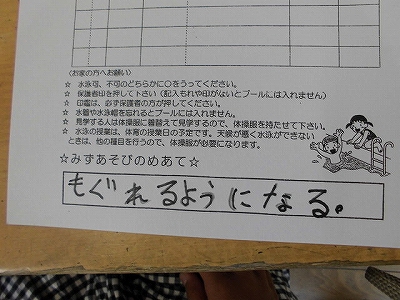 〈お家の方へお願い〉
☆ 水泳可、不可のどちらかに○をうってください。
☆ 保護者印を押して下さい(記入もれや印がないとプールには入れません)
☆ 印鑑は、必ず保護者の方が押してください。
☆ 水着や水泳帽を忘れるとプールには入れません。
☆ 見学する人は体操服に着替えて見学するので、体操服を持たせて下さい。
☆ 水泳の授業は、体育の授業日の予定です。天候が悪く水泳ができない
ときは、他の種目を行うので、体操服が必要になります。
☆みずあそびのめあて☆
もぐれるようになる。